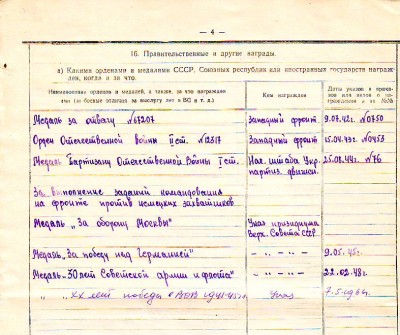 — 4 —
16. Правительственные и другие награды.
а) Какими орденами и медалями СССР, Союзных республик или иностранных государств награж-
ден, когда и за что.
Наименование орденов и медалей, а также, за что награжден
(за боевые отличия за выслугу лет в ВС и т. д.)
Кем награжден
Даты указов и приказов
или актов о
и их №№
Медаль за отвагу №
Западный фронт
9.07.42г. №0750
Орден Отечественной войны II ст. №
Западный фронт
15.04.43г №0453
Медаль Партизану Отечественной Войны I ст.
Нач. штаба Укр.
партиз. движен.
25.08.44г. №76
За выполнение заданий командования
на фронте против немецких захватчиков
Медаль „За оборону Москвы"
Указ президиума
Верх. Совета СССР
Медаль „За победу над Германией"
— „ — „ —
9.05.45г.
Медаль „30 лет Советской армии и флота"
— „ — „ —
22.02.48г.
„ „ XX лет победы в ВОВ 1941-45гг
Указ
7.5.